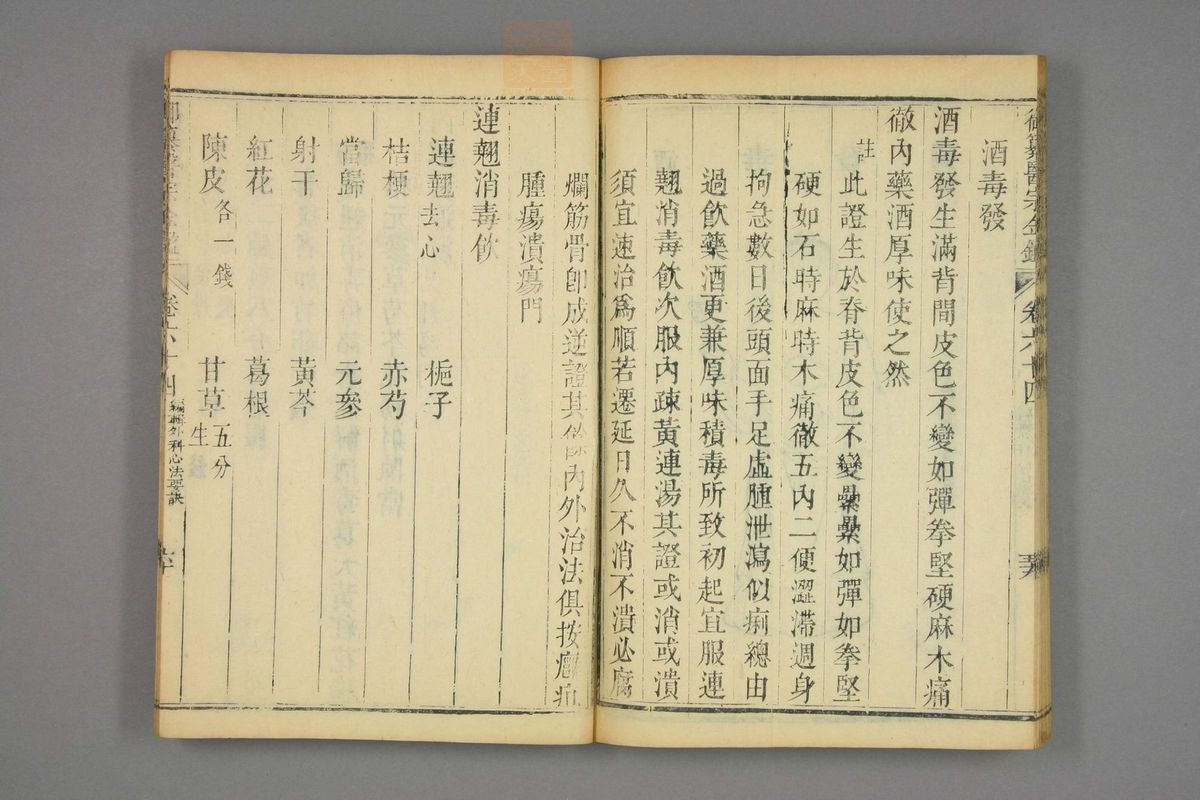 御纂醫宗金鑑 卷六十四
酒毒發
酒毒發生滿背間皮色不變如彈拳堅硬麻木痛
徹內藥酒厚味使之然
註此證生於脊背皮色不變纍纍如彈如拳堅
硬如石時麻時木痛徹五內二便澀滯週身
拘急數日後頭面手足虛腫泄瀉似痢總由
過飲藥酒更兼厚味積毒所致初起宜服連
翹消毒飲次服內疎黃連湯其證或消或潰
須宜速治爲順若遷延日久不消不潰必腐
爛筋骨卽成逆證其餘內外治法俱按癰疽
腫瘍潰瘍門
連翹消毒飲
連翹去心 梔子
桔梗 赤芍
當歸 元參
射干 黃芩
紅花 葛根
陳皮各一錢 甘草生五分
卷六十四 編輯外科心法要訣